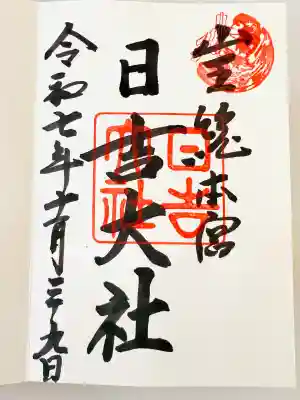 山王総本宮
日吉大社
日吉大社
令和七年十一月二十九日